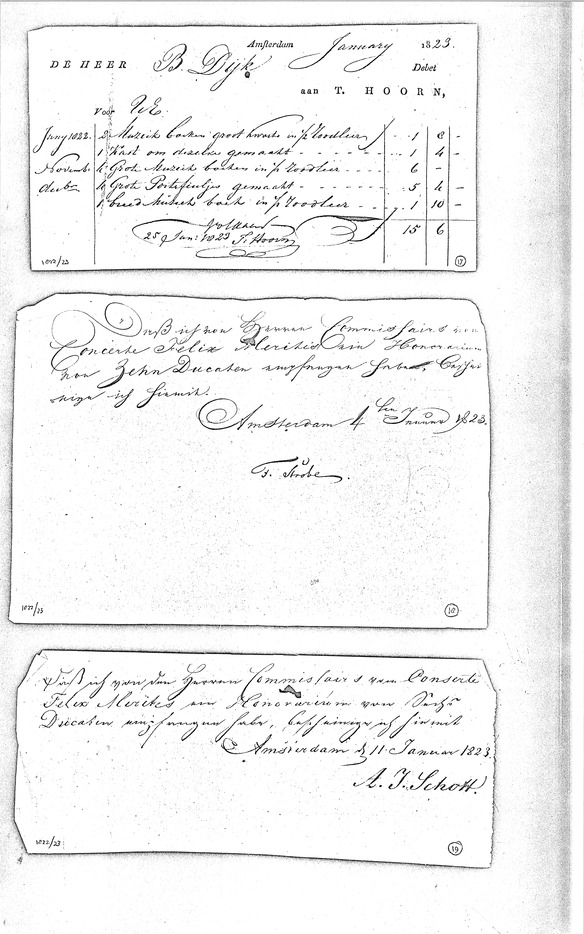 Amsterdam January 1823.
DE HEER B. Dijk Debet
aan T. HOORN,
Voor UE.
Juny 1822. 2 Muziek boeken groot kwarto in ½ Roodleer 1 8 -
1 Kast om dezelve gemaakt 1 4 -
Novemb. 4 Grote Muziek boeken in ½ Roodleer 6 - -
decbr 4 Grote Portefeuljes gemaakt 5 4 -
1 breed Musiek boek in ½ Roodleer 1 10 -
Voldaan 15 6
25 Jan: 1823 T. Hoorn
1822/23 17
Daß ich von Herren Commissairs von
Concerte Felix Meritis ein Honorarium
von Zehn Ducaten empfangen habe, beschei
nige ich hiemit.
Amsterdam 4 ten Januar 1823.
F. Strobe
1822/23 18
Daß ich von den Herren Commissairs vom Conserte
Felix Meritis ein Honorarium von Sechs
Ducaten empfangen habe, bescheinige ich hiemit
Amsterdam d 11 Januar 1823.
A. J. Schott.
1822/23 19